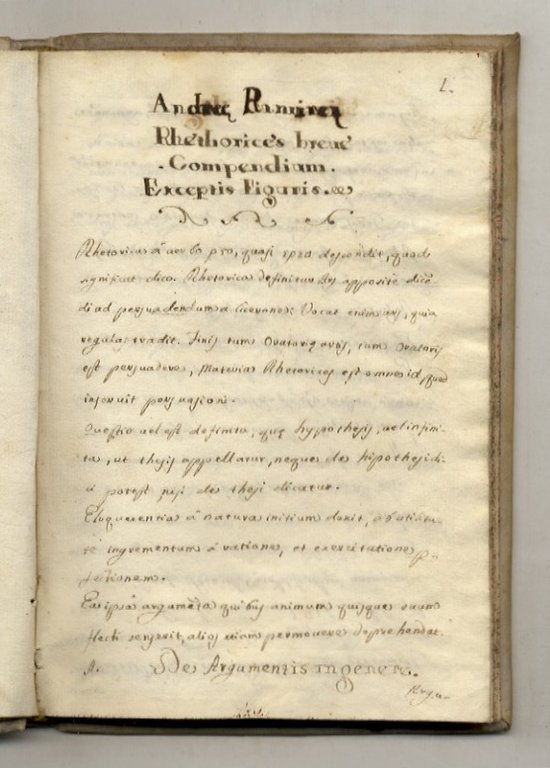 1.
Andreę Ramirez
Rhethorices breue
. Compendium .
Exceptis Figuris.
Rhetorica á verbo pro, quasi descendit, quod
significat dico. Rhetorica definitur Ars apposite dicē-
di ad persuadendum á Cicerone: Vocat enim ars, quia
regulas tradit. Finis tum Oratorię artis, tum Oratoris
est persuadere, Materia Rhetorices est omne id, quod
inservit persuasioni.
Quęstio vel est definita, quę hypothesis, vel infini-
ta, ut thesis appellatur, neque de hipothesi di-
ci potest nisi de thesi dicatur.
Eloquentia á natura initium duxit,
incrementum á ratione, et exercitatione p-
fectionem.
Ea ipsa argumēta quibus animum quisque suum
flecti senserit, alios etiam permovere deprehendet.
De Argumentis in genere.
Argu-